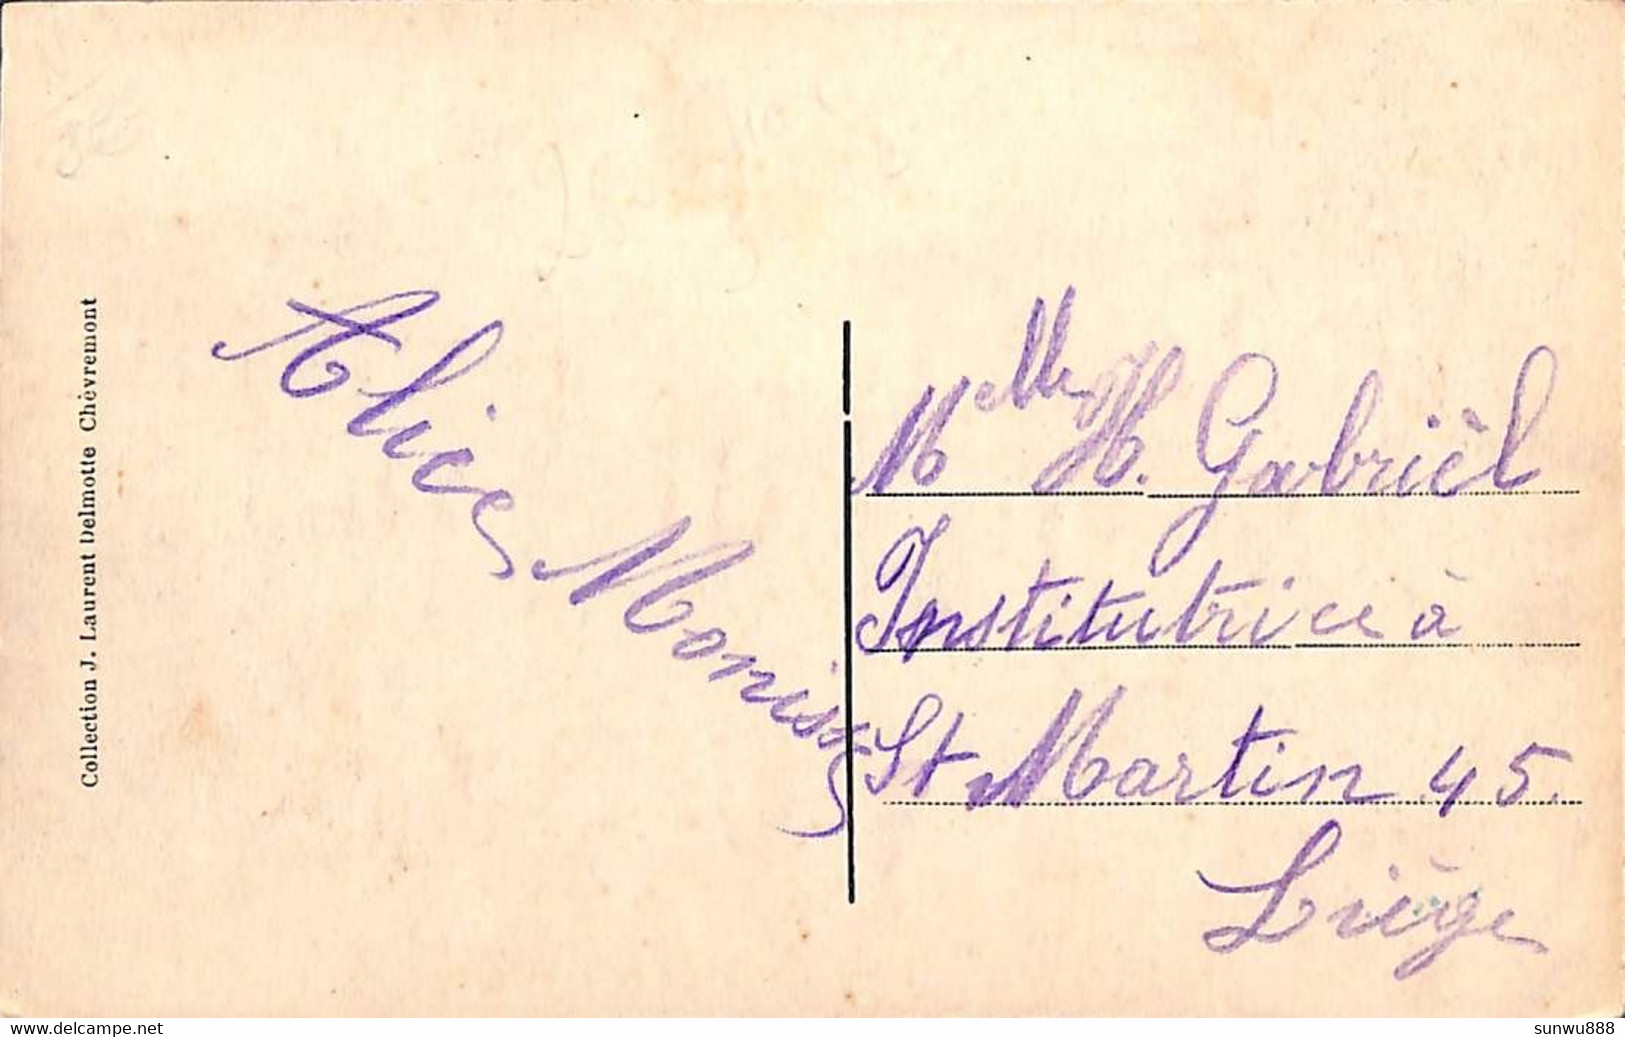 Collection J. Laurent Delmotte Chèvremont
Alice
Melle H. Gabriël
Institutrice à
St Martin 45.
Liège
www.delcampe.net
sunwu888